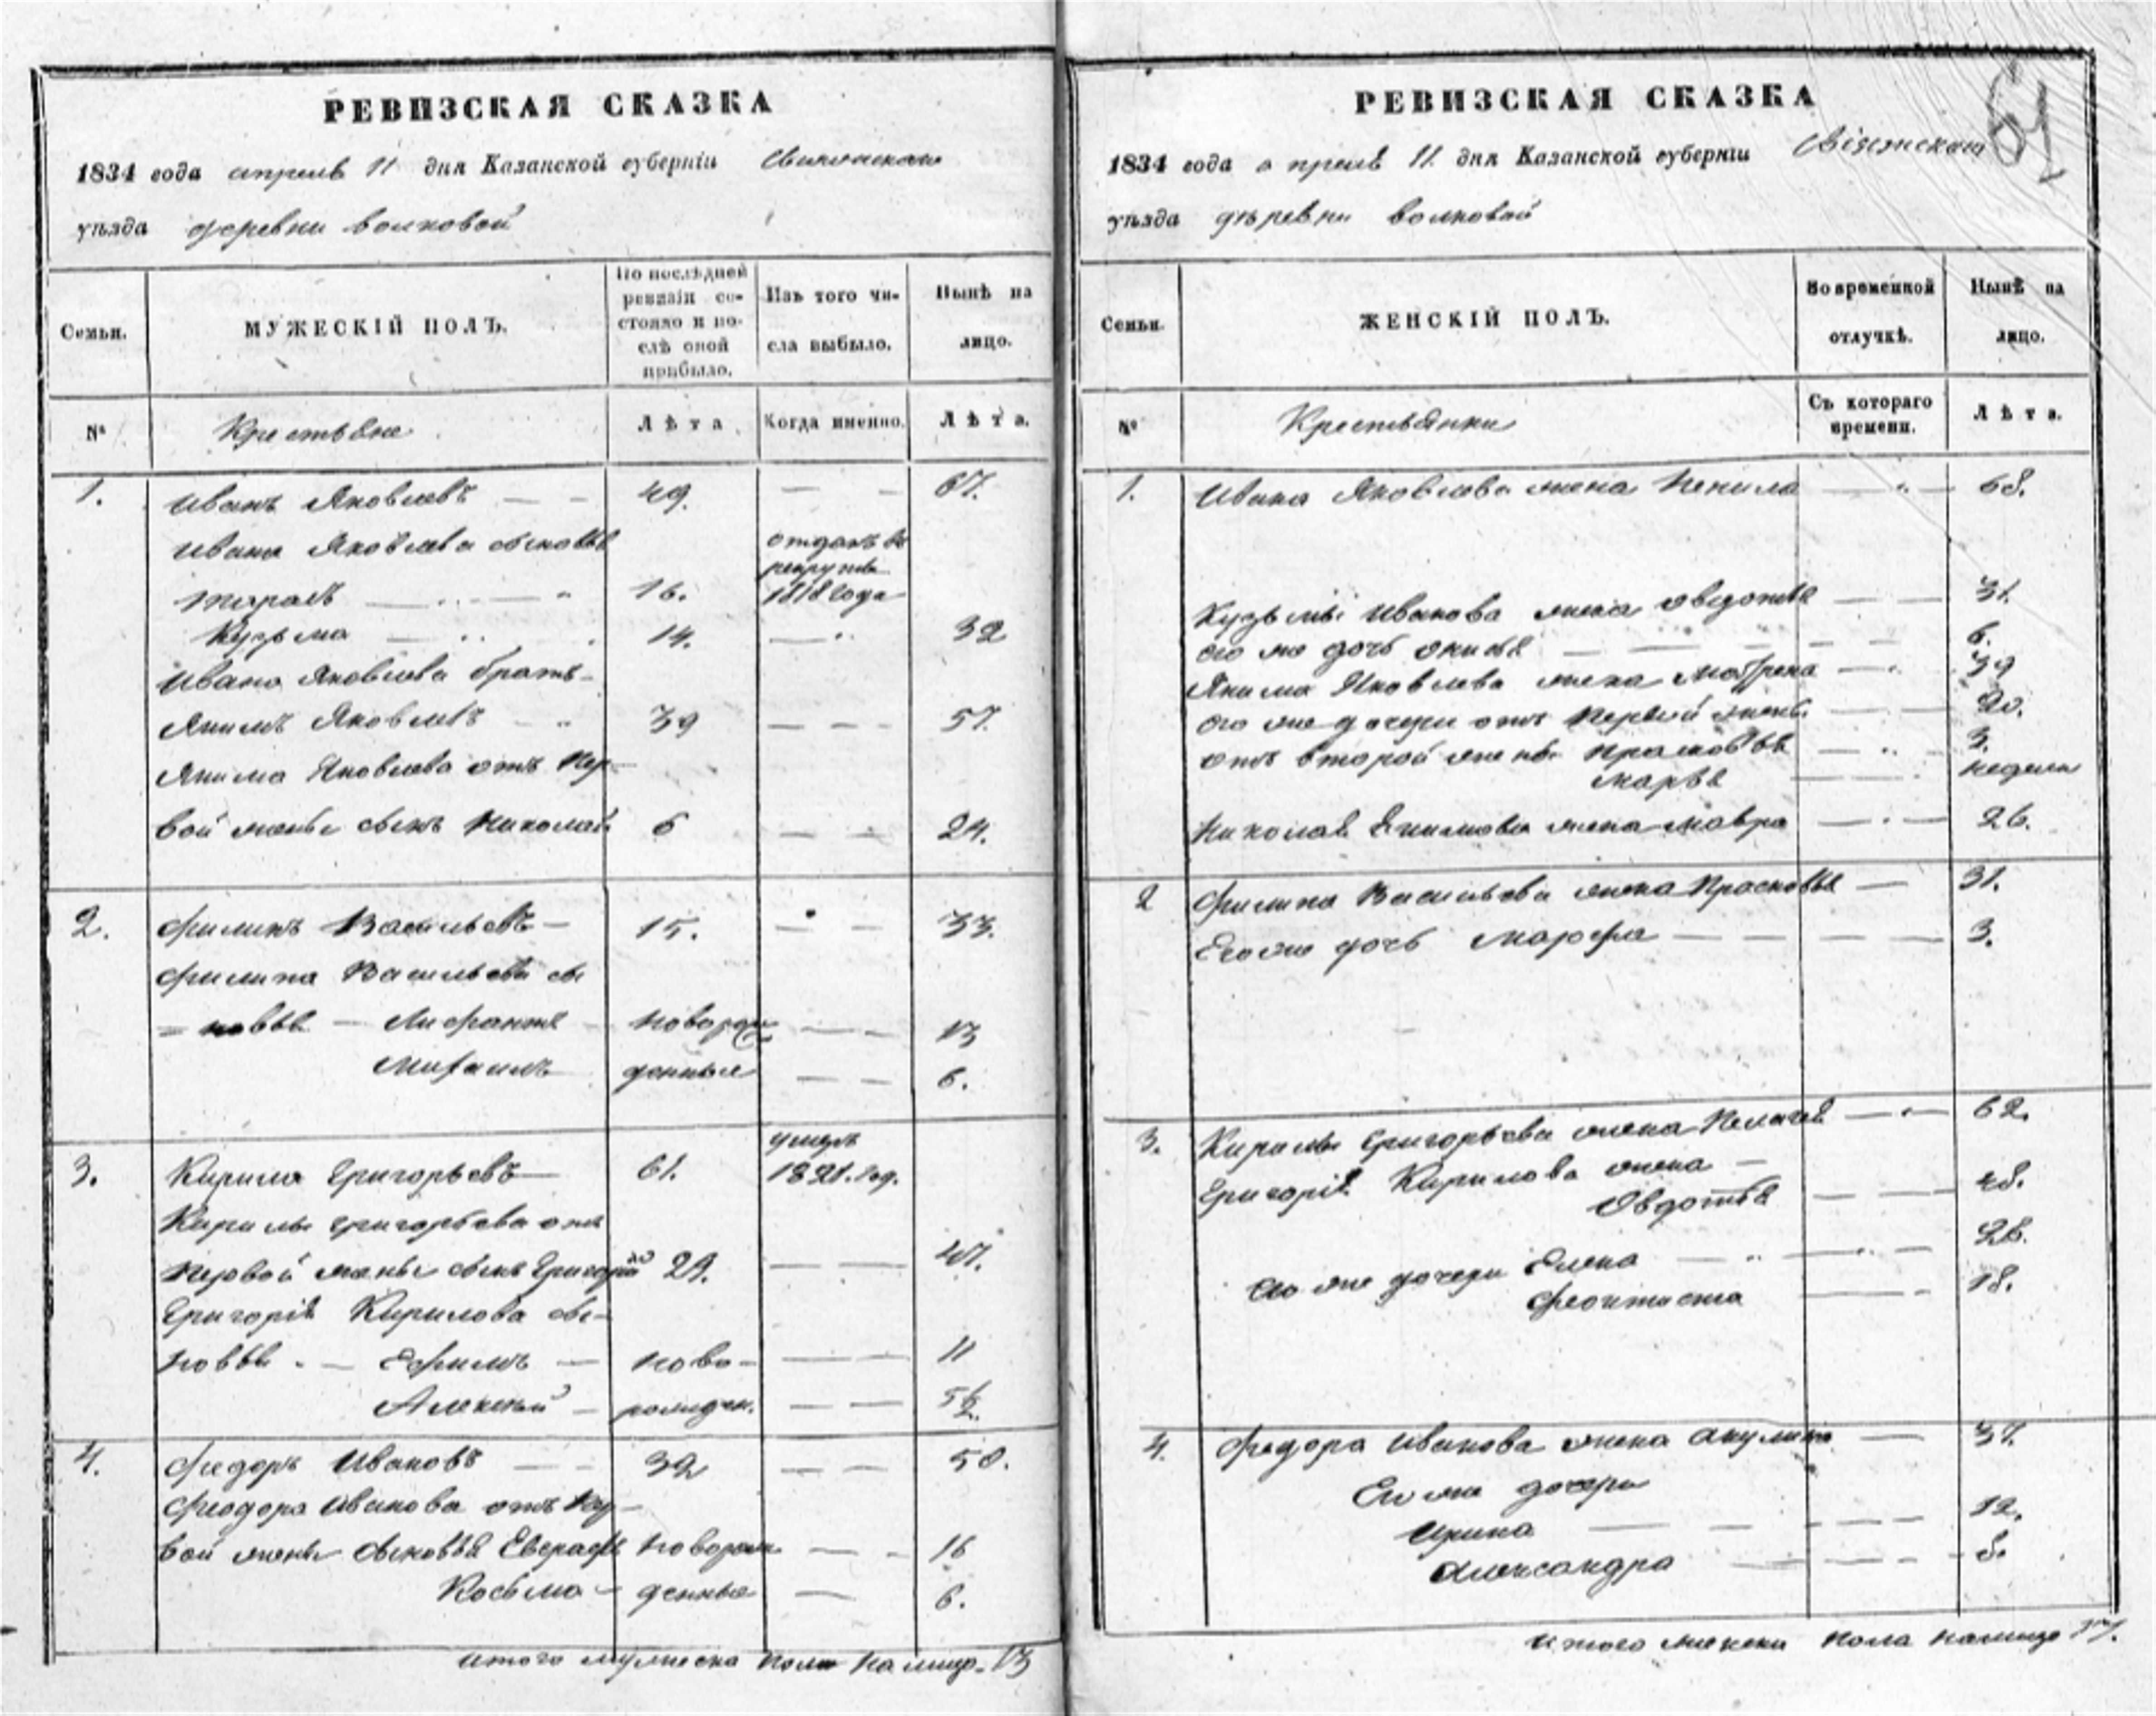 РЕВИЗСКАЯ СКАЗКА
1834 года апреля 11 дня Казанской губерніи Свияжскаго
уѣзда деревни волковой
Семьи.
МУЖЕСКІЙ ПОЛЪ.
По послѣдней ревизіи состояло и послѣ оной прибыло.
Изъ того числа выбыло.
Нынѣ на лицо.
№
Крестьяне
Лѣта
Когда именно.
Лѣта.
1. Иванъ Яковлевъ 49. 67.
Ивана Яковлева сыновья отданъ въ рекруты
Тарасъ 16. 1818 года
Кузьма 14. 32
Ивана Яковлева братъ
Якимъ Яковлевъ 39 57.
Якима Яковлева отъ пер-
вой жены сынъ Николай 6 24.
2. Филипъ Васильевъ 15. 33.
Филипа Васильева сы
=новья Лифантей новорож 13
Михаилъ денные 6.
3. Кирила Григорьевъ 61. умеръ 1821. год.
Кирилы Григорьева отъ
первой жены сынъ Григорій 29. 47.
Григорія Кирилова сы-
новья Ефимъ ново- 11
Алексѣй рожден. 5½.
4. Федоръ Ивановъ 32 50.
Феодора Иванова отъ пер-
вой жены сыновья Евграфъ новорож 16
Косьма денные 6.
итого мужеска пола на лицо 13
61
РЕВИЗСКАЯ СКАЗКА
1834 года апреля 11. дня Казанской губерніи Свіяжскаго
уѣзда деревни волковой
Семьи.
ЖЕНСКІЙ ПОЛЪ.
Во временной отлучкѣ.
Нынѣ на лицо.
№
Крестьянки
Съ котораго времени.
Лѣта.
1. Ивана Яковлева жена Ненила 68.
Кузьмы Иванова жена Овдотья 31.
его же дочь 6.
Якима Яковлева жена Матрена 39
его же дочери отъ первой жены 20.
отъ второй жены Прасковья 3.
Марья недели
Николая Якимова жена Мавра 26.
2 Филипа Васильева жена Прасковья 31.
Его же дочь Марфа 3.
3. Кирилы Григорьева жена Пелагея 62.
Григорія Кирилова жена
Овдотья 48.
его же дочери Елена 26.
Феоктиста 18.
4. Федора Иванова жена Акулина 37.
Его же дочери
Ирина 12.
Александра 8.
итого женска пола налицо 17.